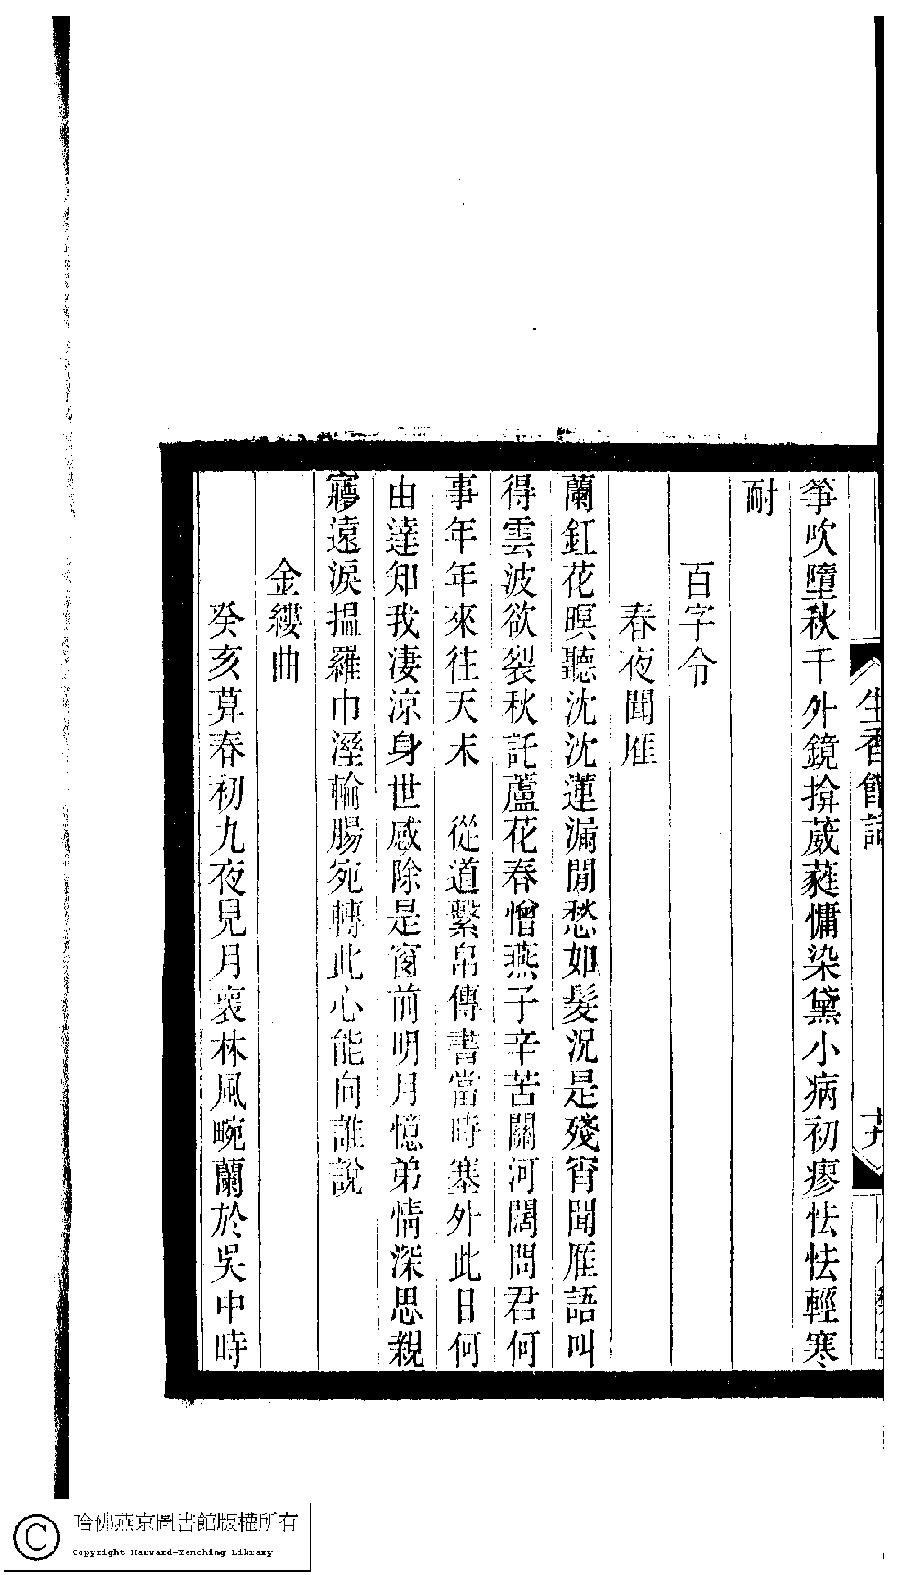 生香館詞
箏吹墮秋千外鏡揜葳蕤慵染黛小病初瘳怯怯輕寒
耐
百字令
春夜聞雁
蘭釭花暝聽沈沈蓮漏閒愁如髮況是殘宵聞雁語叫
得雲波欲裂秋託蘆花春憎燕子辛苦關河闊問君何
事年年來往天末　從道繫帛傳書當時塞外此日何
由達知我淒涼身世感除是窗前明月憶弟情深思親
寢遠淚搵羅巾溼輪腸宛轉此心能向誰說
金縷曲
癸亥莫春初九夜見月裏林風畹蘭於吳中時
哈佛燕京圖書館版權所有
Copyright Harvard-Yenching Library